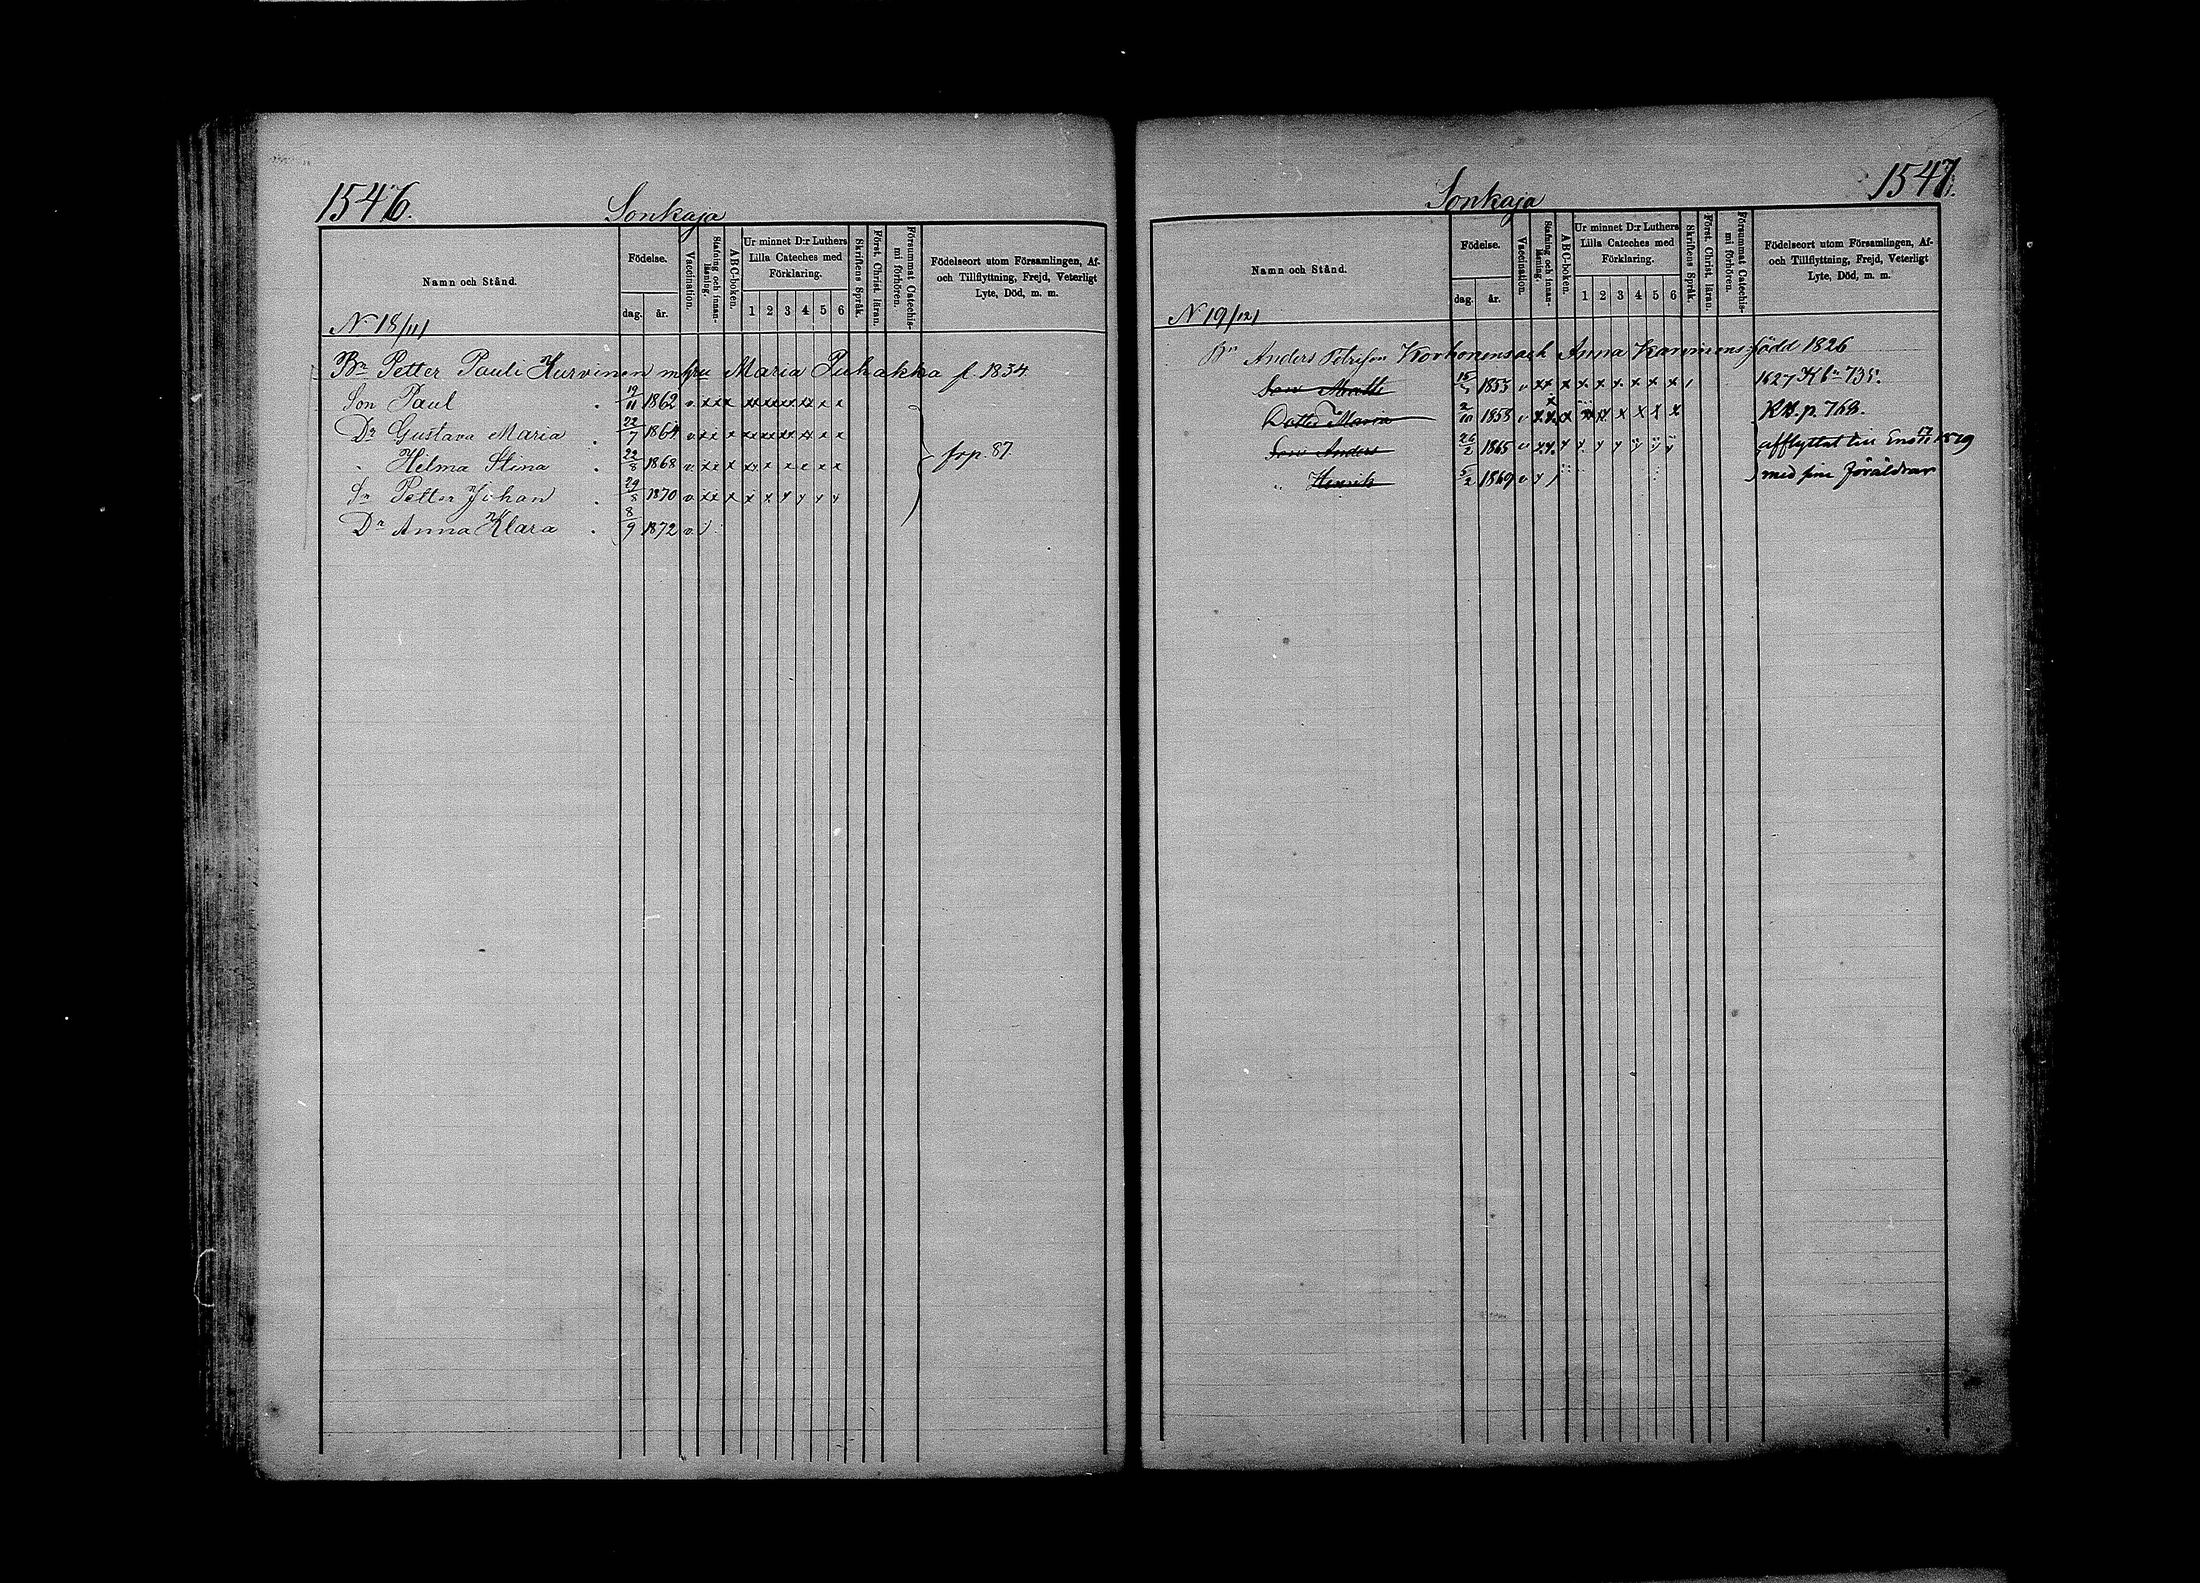 1546.
Sonkaja
Namn och Stånd.
Födelse.
dag.
år.
Vaccination.
Stafning och innanläsning.
ABC-boken.
Ur minnet D:r Luthers
Lilla Cateches med
Förklaring.
1 2 3 4 5 6
Skriftens Språk.
Först. Christ. läran.
Försummat Catechismi förhören.
Födelseort utom Församlingen, Af-
och Tillflyttning, Frejd, Veterligt
Lyte, Död, m. m.
N 18/11/
Bn Petter Pauli Hurvinen m hru Maria Puhakka f. 1834
Son Paul 19/11 1862 v xx x xx xx xx xx x x
Dr Gustava Maria 22/7 1864 v xx x xx xx xx xx x x
" Hilma Stina 22/8 1868 v xx x xx x x x x x frp. 87.
Sn Petter Johan 29/5 1870 v xx x x x y y y y
Dr Anna Klara 8/9 1872 v
1547.
Sonkaja
Namn och Stånd.
Födelse.
dag.
år.
Vaccination.
Stafning och innanläsning.
ABC-boken.
Ur minnet D:r Luthers
Lilla Cateches med
Förklaring.
1 2 3 4 5 6
Skriftens Språk.
Först. Christ. läran.
Försummat Catechismi förhören.
Födelseort utom Församlingen, Af-
och Tillflyttning, Frejd, Veterligt
Lyte, Död, m. m.
N 19/12/
Bn Anders Korhonens och Anna född 1826
Son Matts 1853 v xx x x x x x x x 1627 735.
Dotter Maria 1858 v xx x xx xx x x x x p. 768.
Son Anders 26/2 1865 v afflyttat till Eno 1879
" Henrik 5/2 1869 v med sine föräldrar